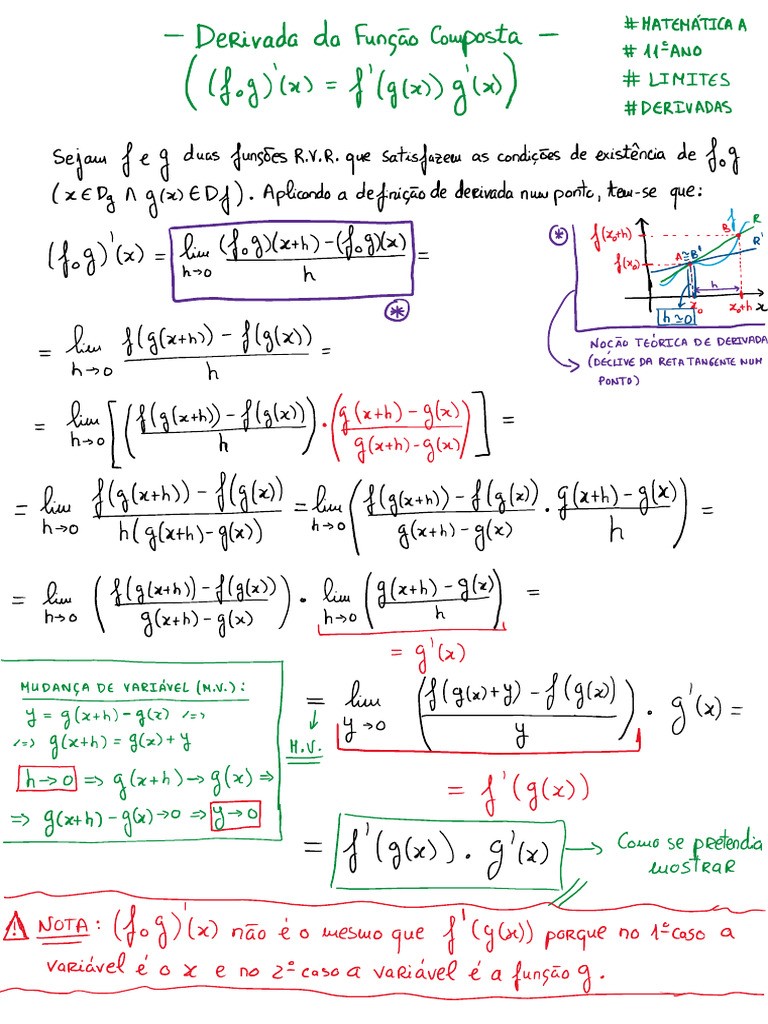 — Derivada da Função Composta —
((f∘g)'(x) = f'(g(x)) g'(x))
# MATEMÁTICA A
# 11º ANO
# LIMITES
# DERIVADAS
Sejam f e g duas funções R.V.R. que satisfazem as condições de existência de f∘g
(x ∈ Dg ∧ g(x) ∈ Df). Aplicando a definição de derivada num ponto, tem-se que:
(f∘g)'(x) = lim h→0 ((f∘g)(x+h) – (f∘g)(x))/h =
*
*
f(x₀+h)
f(x₀)
f
B
R
R'
A≅B'
h
x₀
x₀+h
x
h≅0
NOÇÃO TEÓRICA DE DERIVADA
(DECLIVE DA RETA TANGENTE NUM
PONTO)
= lim h→0 (f(g(x+h)) – f(g(x)))/h =
= lim h→0 [((f(g(x+h)) – f(g(x)))/h) · ((g(x+h) – g(x))/(g(x+h) – g(x)))] =
= lim h→0 (f(g(x+h)) – f(g(x)))/(h(g(x+h) – g(x))) = lim h→0 ((f(g(x+h)) – f(g(x)))/(g(x+h) – g(x)) · (g(x+h) – g(x))/h) =
= lim h→0 ((f(g(x+h)) – f(g(x)))/(g(x+h) – g(x))) · lim h→0 ((g(x+h) – g(x))/h) =
= g'(x)
MUDANÇA DE VARIÁVEL (M.V.):
y = g(x+h) – g(x) <=>
<=> g(x+h) = g(x) + y
h→0 => g(x+h) → g(x) =>
=> g(x+h) – g(x) → 0 => y→0
= lim y→0 ((f(g(x)+y) – f(g(x)))/y) · g'(x) =
M.V.
= f'(g(x))
= f'(g(x)) · g'(x)
Como se pretendia
mostrar
⚠ NOTA: (f∘g)'(x) não é o mesmo que f'(g(x)) porque no 1º caso a
variável é o x e no 2º caso a variável é a função g.